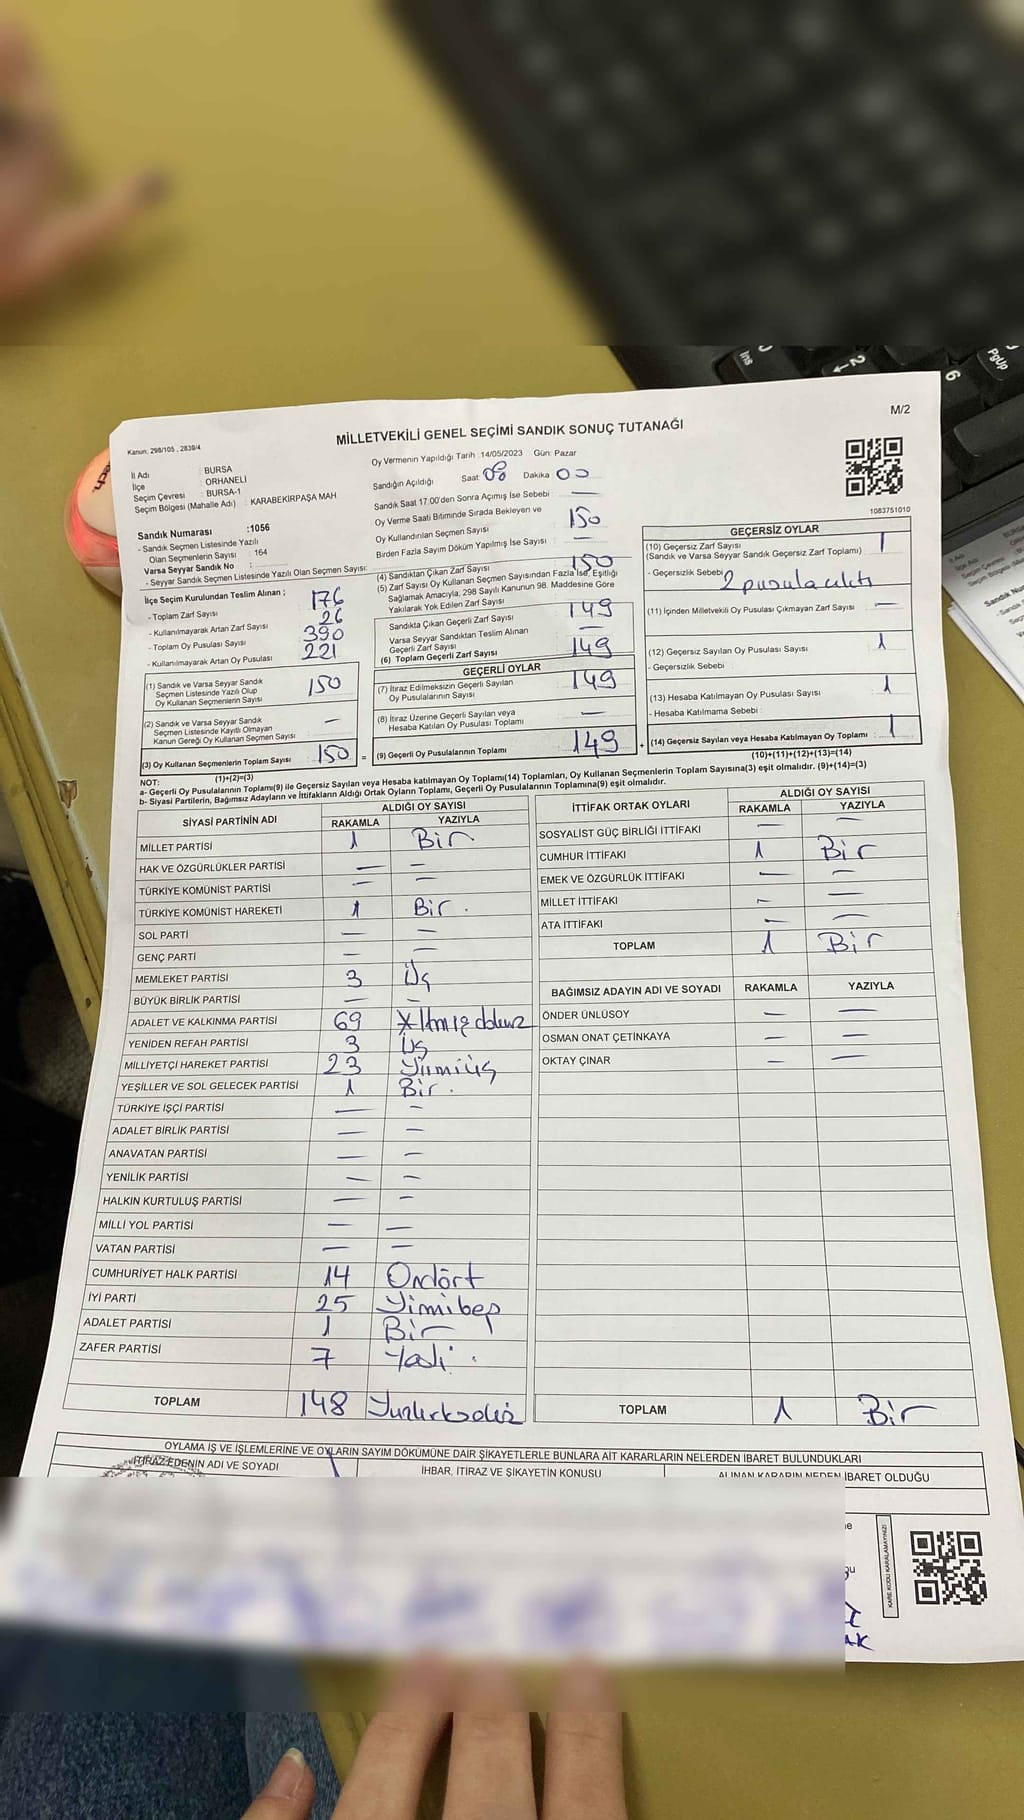 Ins
2
6
PgUp
M/2
Kanun; 298/105 , 2839/4
MİLLETVEKİLİ GENEL SEÇİMİ SANDIK SONUÇ TUTANAĞI
İl Adı : BURSA
İlçe : ORHANELİ
Seçim Çevresi : BURSA-1
Seçim Bölgesi (Mahalle Adı) : KARABEKİRPAŞA MAH
Oy Vermenin Yapıldığı Tarih :14/05/2023 Gün: Pazar
Sandığın Açıldığı Saat 08 Dakika 00
Sandık Saat 17:00'den Sonra Açımış İse Sebebi —
Oy Verme Saati Bitiminde Sırada Bekleyen ve
Oy Kullandırılan Seçmen Sayısı 150
Birden Fazla Sayım Döküm Yapılmış İse Sayısı —
1083751010
Sandık Numarası :1056
- Sandık Seçmen Listesinde Yazılı
Olan Seçmenlerin Sayısı : 164
Varsa Seyyar Sandık No :
- Seyyar Sandık Seçmen Listesinde Yazılı Olan Seçmen Sayısı:
İlçe Seçim Kurulundan Teslim Alınan ;
- Toplam Zarf Sayısı 176
- Kullanılmayarak Artan Zarf Sayısı 26
- Toplam Oy Pusulası Sayısı 390
- Kullanılmayarak Artan Oy Pusulası 221
(1) Sandık ve Varsa Seyyar Sandık
Seçmen Listesinde Yazılı Olup
Oy Kullanan Seçmenlerin Sayısı 150
(2) Sandık ve Varsa Seyyar Sandık
Seçmen Listesinde Kayıtlı Olmayan
Kanun Gereği Oy Kullanan Seçmen Sayısı —
(3) Oy Kullanan Seçmenlerin Toplam Sayısı 150 =
(1)+(2)=(3)
(4) Sandıktan Çıkan Zarf Sayısı 150
(5) Zarf Sayısı Oy Kullanan Seçmen Sayısından Fazla İse, Eşitliği
Sağlamak Amacıyla; 298 Sayılı Kanunun 98. Maddesine Göre
Yakılarak Yok Edilen Zarf Sayısı
Sandıkta Çıkan Geçerli Zarf Sayısı 149
Varsa Seyyar Sandıktan Teslim Alınan
Geçerli Zarf Sayısı —
(6) Toplam Geçerli Zarf Sayısı 149
GEÇERLİ OYLAR
(7) İtiraz Edilmeksizin Geçerli Sayılan
Oy Pusulalarının Sayısı 149
(8) İtiraz Üzerine Geçerli Sayılan veya
Hesaba Katılan Oy Pusulası Toplamı —
(9) Geçerli Oy Pusulalarının Toplamı 149 +
GEÇERSİZ OYLAR
(10) Geçersiz Zarf Sayısı 1
(Sandık ve Varsa Seyyar Sandık Geçersiz Zarf Toplamı)
- Geçersizlik Sebebi : 2 pusula çıktı
(11) İçinden Milletvekili Oy Pusulası Çıkmayan Zarf Sayısı : —
(12) Geçersiz Sayılan Oy Pusulası Sayısı : 1
- Geçersizlik Sebebi :
(13) Hesaba Katılmayan Oy Pusulası Sayısı : 1
- Hesaba Katılmama Sebebi :
(14) Geçersiz Sayılan veya Hesaba Katılmayan Oy Toplamı : 1
(10)+(11)+(12)+(13)=(14)
NOT:
a- Geçerli Oy Pusulalarının Toplamı(9) ile Geçersiz Sayılan veya Hesaba katılmayan Oy Toplamı(14) Toplamları, Oy Kullanan Seçmenlerin Toplam Sayısına(3) eşit olmalıdır. (9)+(14)=(3)
b- Siyasi Partilerin, Bağımsız Adayların ve İttifakların Aldığı Ortak Oyların Toplamı, Geçerli Oy Pusulalarının Toplamına(9) eşit olmalıdır.
SİYASİ PARTİNİN ADI ALDIĞI OY SAYISI
RAKAMLA YAZIYLA
MİLLET PARTİSİ 1 Bir
HAK VE ÖZGÜRLÜKLER PARTİSİ — —
TÜRKİYE KOMÜNİST PARTİSİ — —
TÜRKİYE KOMÜNİST HAREKETİ 1 Bir.
SOL PARTİ — —
GENÇ PARTİ — —
MEMLEKET PARTİSİ 3 Üç
BÜYÜK BİRLİK PARTİSİ — —
ADALET VE KALKINMA PARTİSİ 69
YENİDEN REFAH PARTİSİ 3 Üç
MİLLİYETÇİ HAREKET PARTİSİ 23 Yirmiüç
YEŞİLLER VE SOL GELECEK PARTİSİ 1 Bir.
TÜRKİYE İŞÇİ PARTİSİ — —
ADALET BİRLİK PARTİSİ — —
ANAVATAN PARTİSİ — —
YENİLİK PARTİSİ — —
HALKIN KURTULUŞ PARTİSİ — —
MİLLİ YOL PARTİSİ — —
VATAN PARTİSİ — —
CUMHURİYET HALK PARTİSİ 14 Ondört
İYİ PARTİ 25 Yirmibeş
ADALET PARTİSİ 1 Bir
ZAFER PARTİSİ 7 Yedi.
TOPLAM 148 Yüzkırksekiz
İTTİFAK ORTAK OYLARI ALDIĞI OY SAYISI
RAKAMLA YAZIYLA
SOSYALİST GÜÇ BİRLİĞİ İTTİFAKI — —
CUMHUR İTTİFAKI 1 Bir
EMEK VE ÖZGÜRLÜK İTTİFAKI — —
MİLLET İTTİFAKI — —
ATA İTTİFAKI — —
TOPLAM 1 Bir
BAĞIMSIZ ADAYIN ADI VE SOYADI RAKAMLA YAZIYLA
ÖNDER ÜNLÜSOY — —
OSMAN ONAT ÇETİNKAYA — —
OKTAY ÇINAR — —
TOPLAM 1 Bir
OYLAMA İŞ VE İŞLEMLERİNE VE OYLARIN SAYIM DÖKÜMÜNE DAİR ŞİKAYETLERLE BUNLARA AİT KARARLARIN NELERDEN İBARET BULUNDUKLARI
İTİRAZ EDENİN ADI VE SOYADI İHBAR, İTİRAZ VE ŞİKAYETİN KONUSU ALINAN KARARIN NEDEN İBARET OLDUĞU
KARE KODU KARALAMAYINIZ!